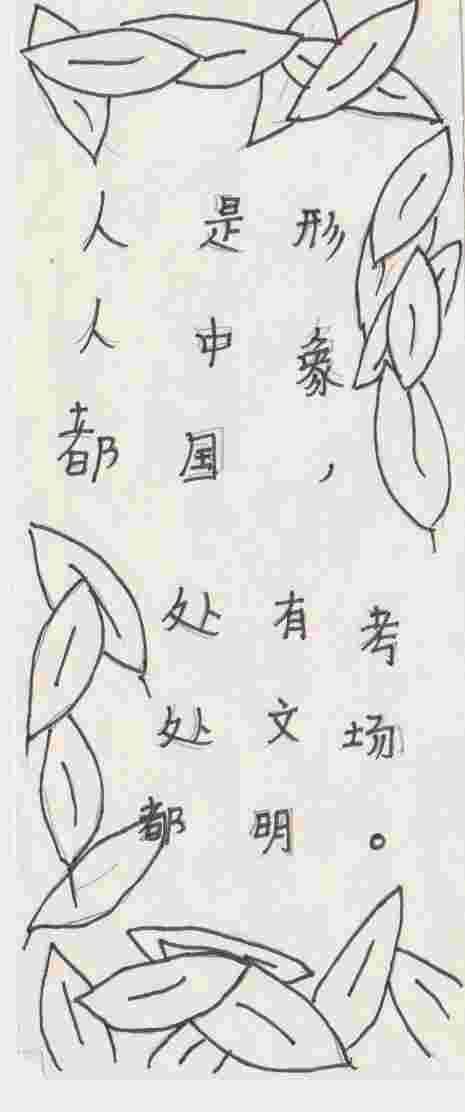 人人都
是中国
形象，
处处都
有文明
考场。